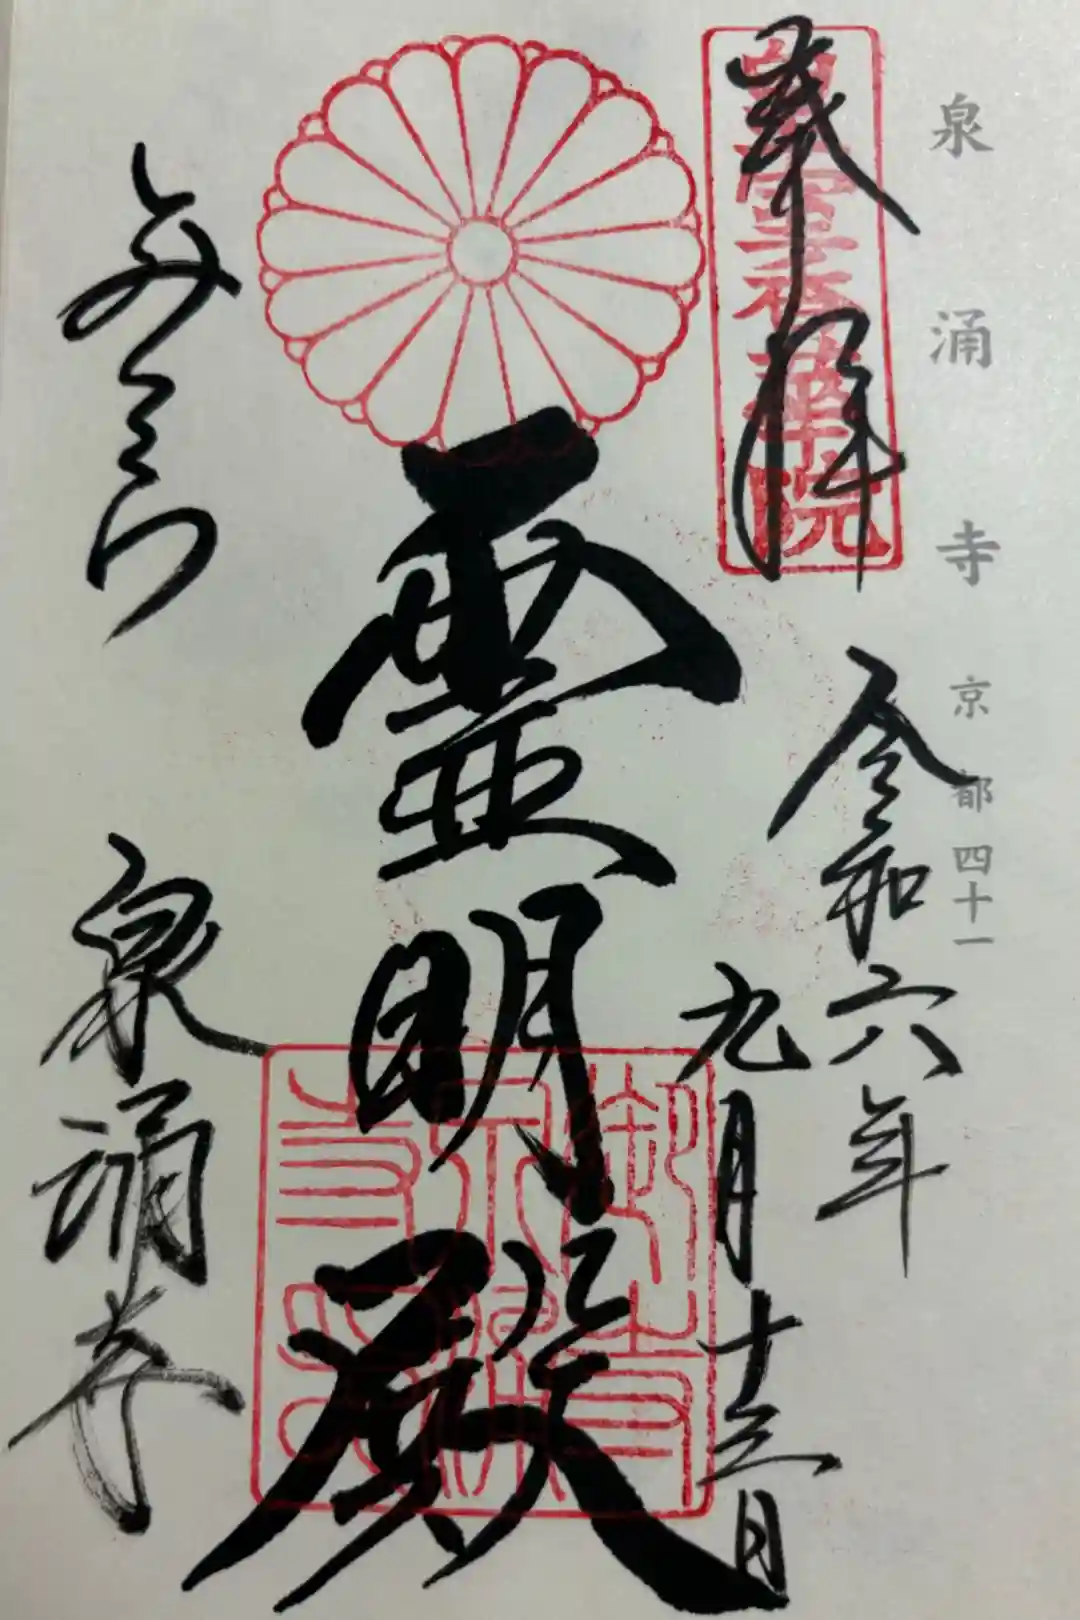 泉涌寺 京都四十一
皇室香華院
奉拝
令和六年
九月十三日
霊明殿
泉涌寺